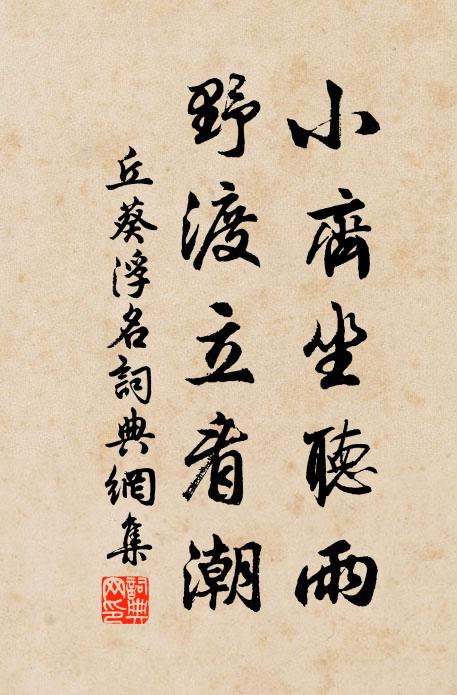 小齊坐聽雨
野渡立看潮
丘葵浮名詞典網集
詞典網印